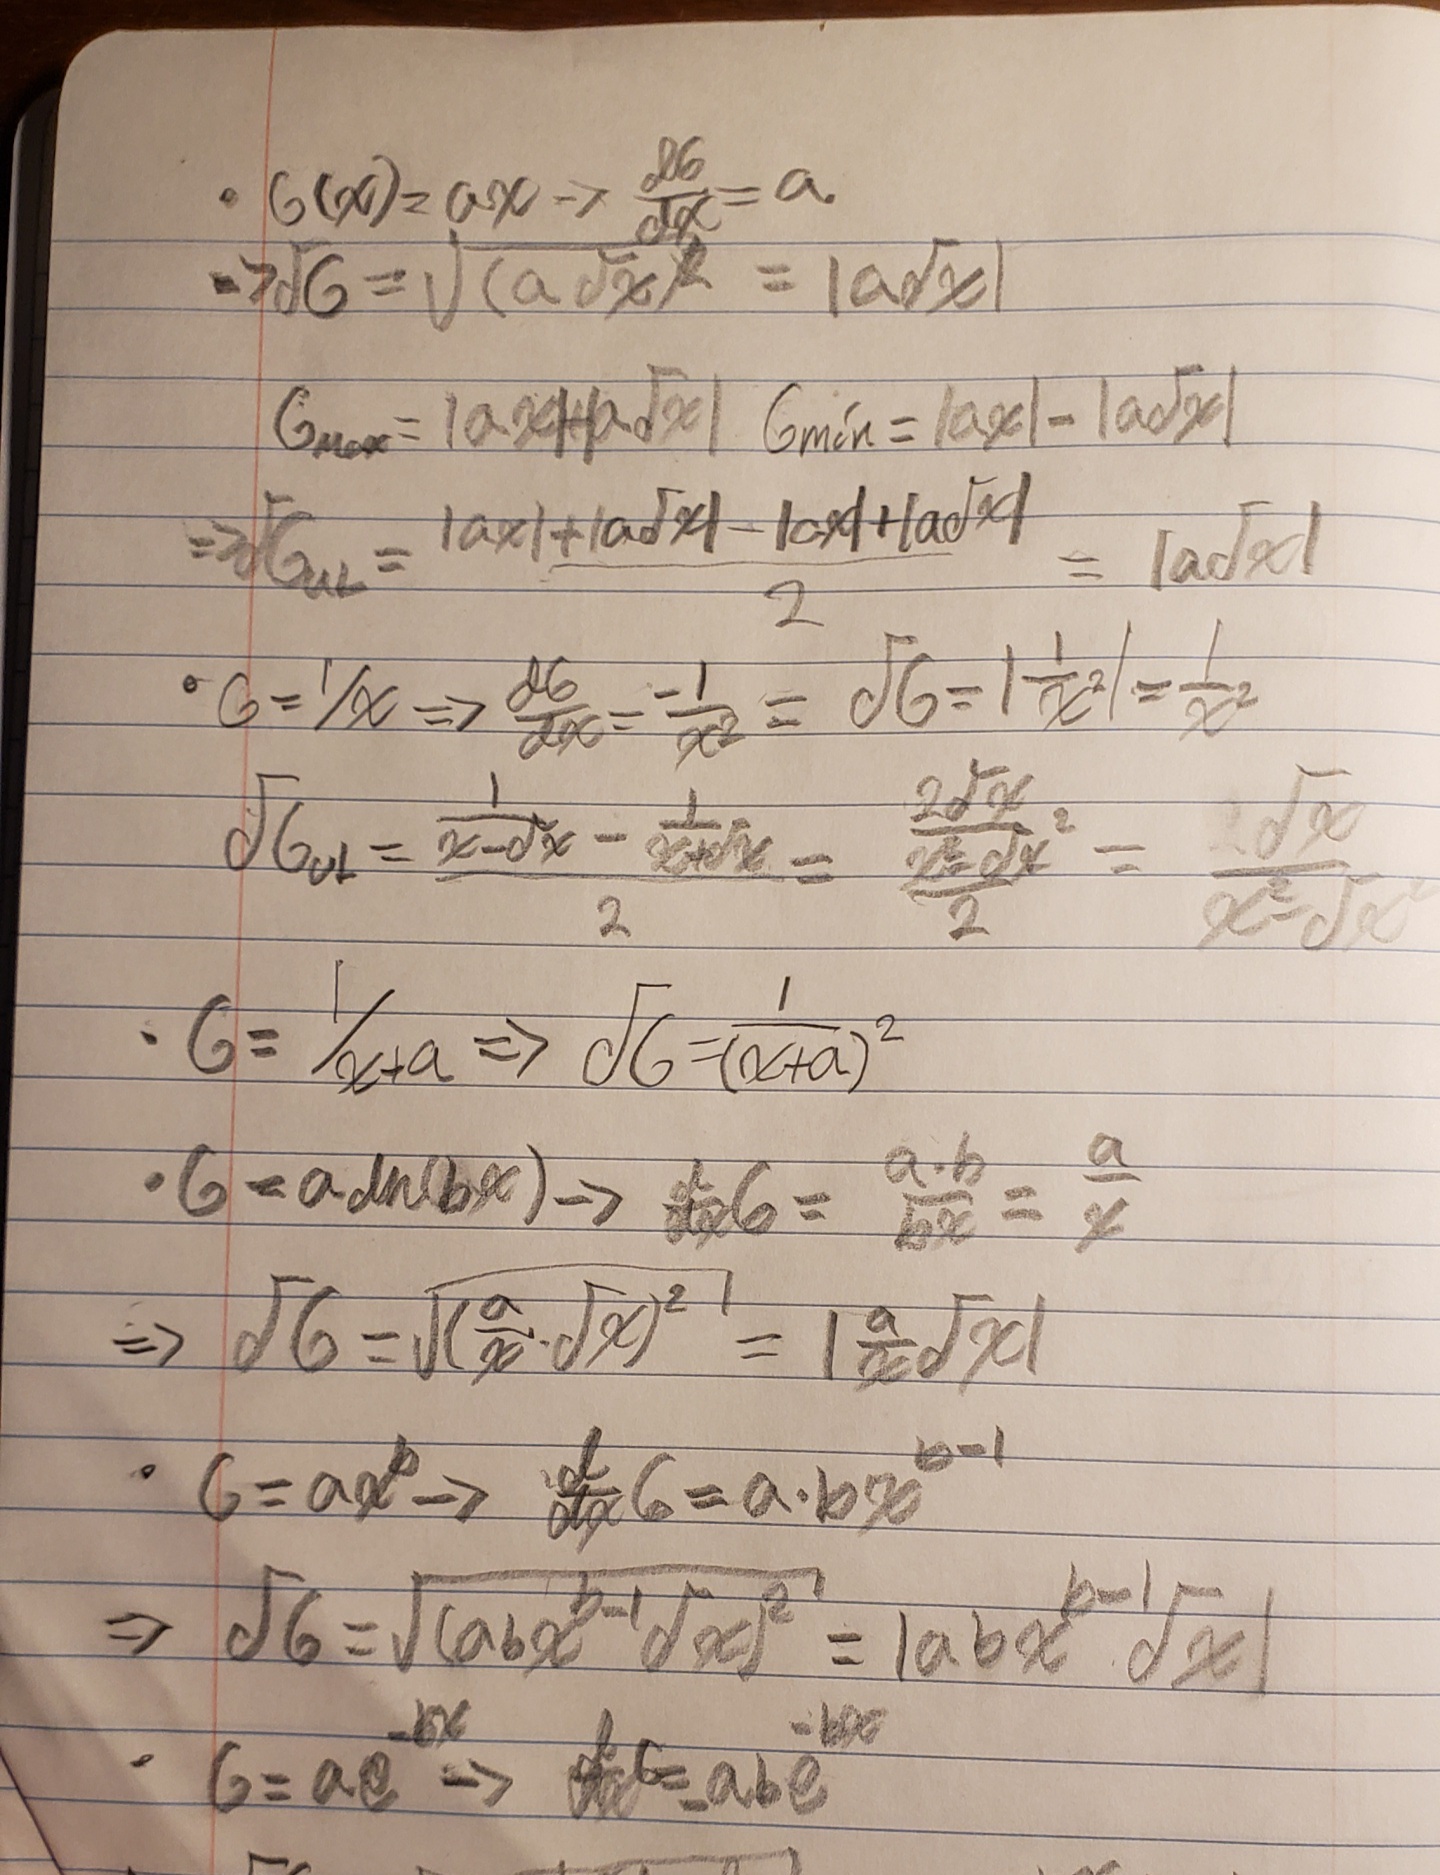 • G(x) = ax -> dG/dx = a
=> δG = √(a δx)² = |aδx|
Gmax = |ax|+|aδx| Gmin = |ax| - |aδx|
=> δG_UL = (|ax| + |aδx| - |ax| + |aδx|)/2 = |aδx|
• G = 1/x => dG/dx = -1/x² = δG = |1/x²| = 1/x²
δG_UL = (1/(x-δx) - 1/(x+δx))/2 = (2δx/(x²-δx²))/2 = 2δx/(x²-δx²)
• G = 1/x+a => δG = 1/(x+a)²
• G = a ln(bx) -> d/dx G = a·b/bx = a/x
=> δG = √(a/x · δx)² = |a/x δx|
• G = ax^b -> d/dx G = a·bx^b-1
=> δG = √(abx^b-1 δx)² = |abx^b-1 δx|
• G = ae^-bx -> d/dx G = -abe^-bx